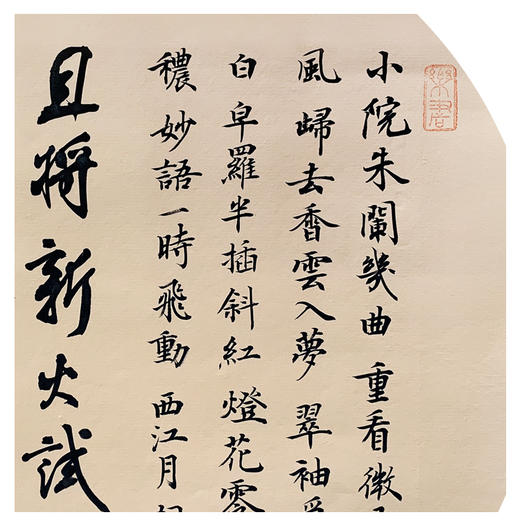 小院朱闌幾曲 重看微
風歸去香雲入夢 翠袖
白皁羅半插斜紅 燈花零
穠妙語一時飛動 西江月
且將新火試